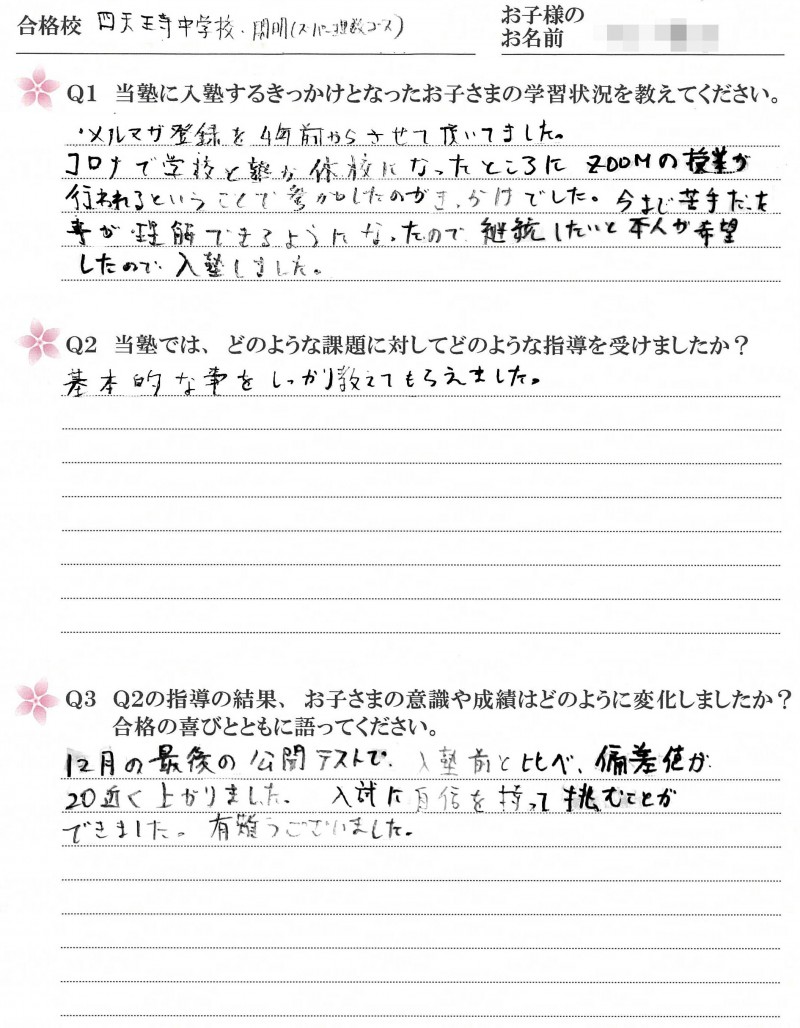 合格校 四天王寺中学校・開明(スーパー理数コース)
お子様の
お名前
Q1 当塾に入塾するきっかけとなったお子さまの学習状況を教えてください。
メルマガ登録を4年前からさせて頂いてました。
コロナで学校と塾が休校になったところに ZOOMの授業が
行われるということで参加したのがきっかけでした。今まで苦手だった
事が理解できるようになったので、継続したいと本人が希望
したので入塾しました。
Q2 当塾では、どのような課題に対してどのような指導を受けましたか？
基本的な事をしっかり教えてもらえました。
Q3 Q2の指導の結果、お子さまの意識や成績はどのように変化しましたか？
合格の喜びとともに語ってください。
12月の最後の公開テストで、入塾前と比べ、偏差値が
20近く上がりました。 入試に自信を持って挑むことが
できました。有難うございました。